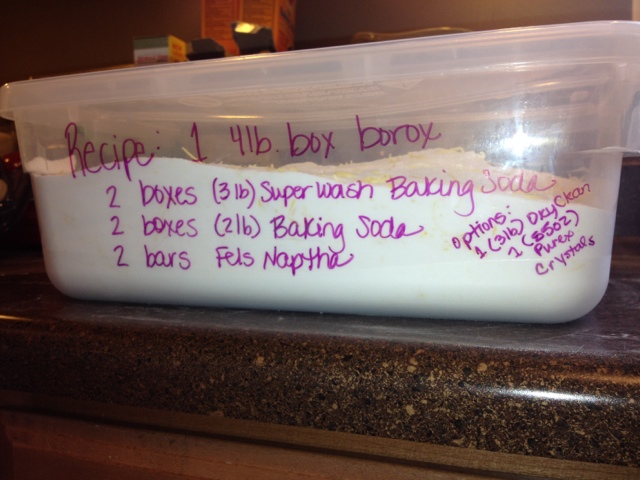 Recipe: 1 4lb. box borox
2 boxes (3lb) Super Wash Baking Soda
2 boxes (2lb) Baking Soda
2 bars Fels Naptha
options:
1 (3lb) OxyClean
1 (55oz)
Purex
Crystals